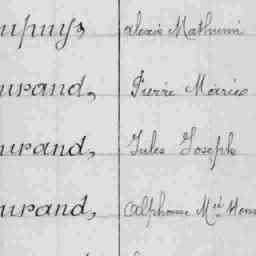 upuy, Alexis Mathurin
urand, Pierre Moïse
urand, Jules Joseph
urand, Alphonse M.el Hen